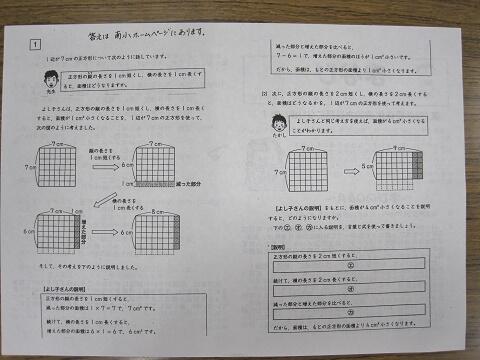 答えは 南小ホームページにあります。
1
1辺が7cmの正方形について次のように話しています。
正方形の縦の長さを1cm短くし、横の長さを1cm長くす
ると、面積はどうなりますか。
先生
よし子さんは、正方形の縦の長さを1cm短くし、横の長さを1cm長く
すると、面積が1cm²小さくなることを、1辺が7cmの正方形を使って、
次の図のように考えました。
7cm
7cm
縦の長さを
1cm短くする
7cm
6cm
1cm
減った部分
横の長さを
1cm長くする
7cm 1cm
6cm
増えた部分
8cm
6cm
そして、その考えを下のように説明しました。
【よし子さんの説明】
正方形の縦の長さを1cm短くすると、
減った部分の面積は1×7=7で、7cm²です。
続けて、横の長さを1cm長くすると、
増えた部分の面積は6×1=6で、6cm²です。
減った部分と増えた部分を比べると、
7-6=1で、増えた部分の面積のほうが1cm²小さいです。
だから、面積は、もとの正方形の面積より1cm²小さくなります。
(2) 次に、正方形の縦の長さを2cm短くし、横の長さを2cm長くする
と、面積はどうなるかを、1辺が7cmの正方形を使って考えます。
よし子さんと同じ考え方を使えば、面積が4cm²小さくなる
ことがわかります。
たかし
7cm
7cm
9cm
5cm
【よし子さんの説明】をもとに、面積が4cm²小さくなることを説明
すると、どのようになりますか。
下の㋓、㋔、㋕に入る説明を、言葉と式を使って書きましょう。
【説明】
正方形の縦の長さを2cm短くすると、
㋓
続けて、横の長さを2cm長くすると、
㋔
減った部分と増えた部分を比べると、
㋕
だから、面積は、もとの正方形の面積より4cm²小さくなります。